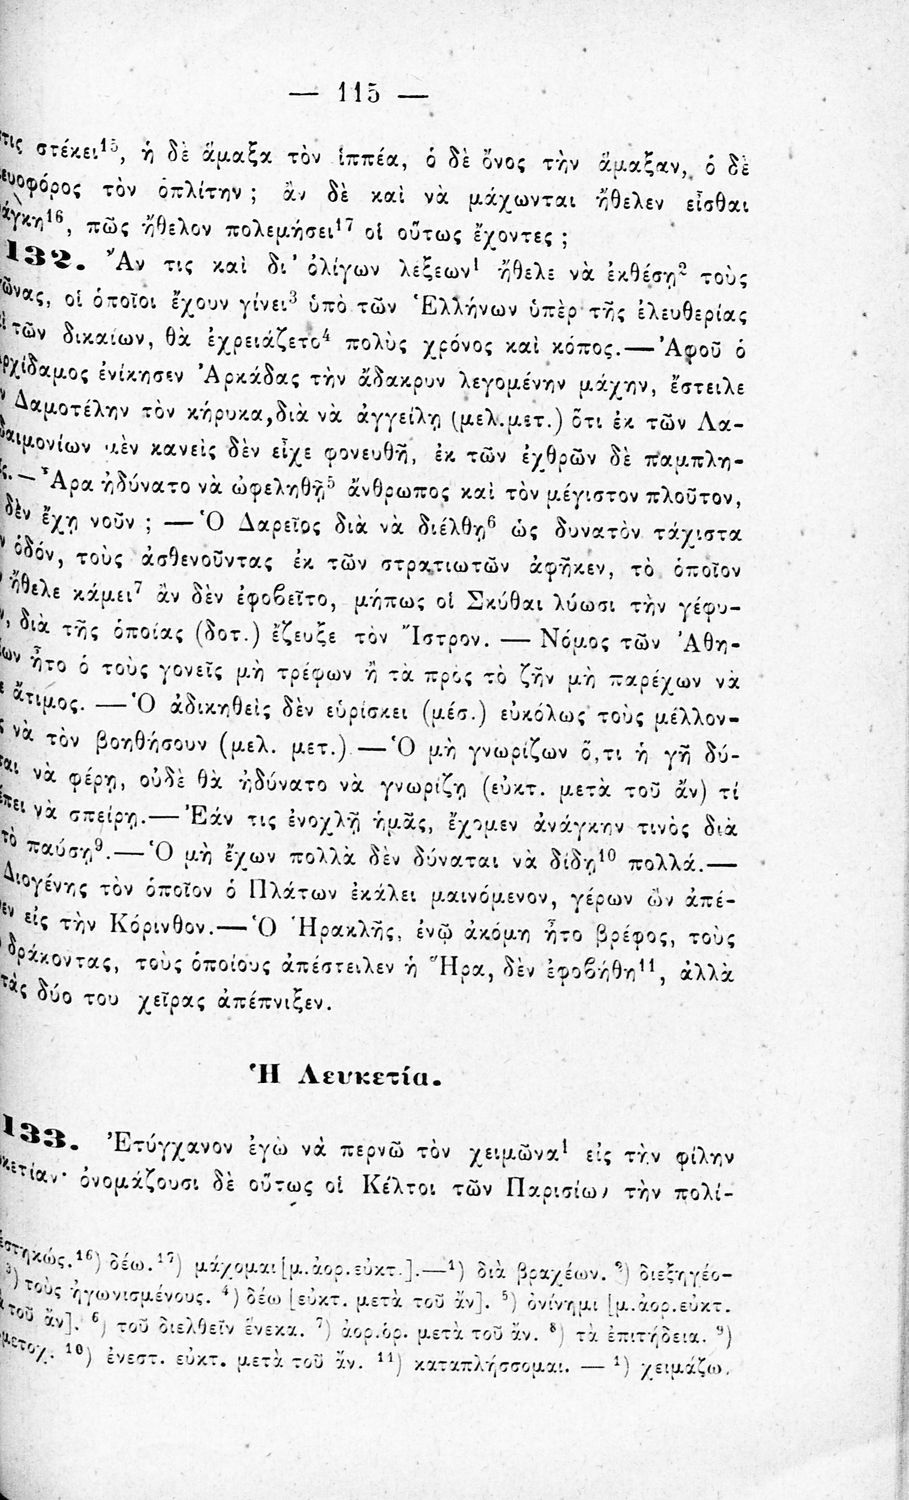 — 115 —
στέκει¹⁵, ἡ δὲ ἅμαξα τὸν ἱππέα, ὁ δὲ ὄνος τὴν ἅμαξαν, ὁ δὲ
τὸν ὁπλίτην ; ἂν δὲ καὶ νὰ μάχωνται ἤθελεν εἶσθαι
πῶς ἤθελον πολεμήσει¹⁷ οἱ οὕτως ἔχοντες ;
132. Ἄν τις καὶ δι' ὀλίγων λέξεων¹ ἤθελε νὰ ἐκθέσῃ² τοὺς
οἱ ὁποῖοι ἔχουν γίνει³ ὑπὸ τῶν Ἑλλήνων ὑπὲρ τῆς ἐλευθερίας
τῶν δικαίων, θὰ ἐχρειάζετο⁴ πολὺς χρόνος καὶ κόπος.—Ἀφοῦ ὁ
ἐνίκησεν Ἀρκάδας τὴν ἄδακρυν λεγομένην μάχην, ἔστειλε
Δαμοτέλην τὸν κήρυκα, διὰ νὰ ἀγγείλῃ (μελ.μετ.) ὅτι ἐκ τῶν Λα-
μὲν κανεὶς δὲν εἶχε φονευθῆ, ἐκ τῶν ἐχθρῶν δὲ παμπλη-
— Ἆρα ἠδύνατο νὰ ὠφεληθῇ⁵ ἄνθρωπος καὶ τὸν μέγιστον πλοῦτον,
δὲν ἔχῃ νοῦν ; — Ὁ Δαρεῖος διὰ νὰ διέλθῃ⁶ ὡς δυνατὸν τάχιστα
ὁδόν, τοὺς ἀσθενοῦντας ἐκ τῶν στρατιωτῶν ἀφῆκεν, τὸ ὁποῖον
ἤθελε κάμει⁷ ἂν δὲν ἐφοβεῖτο, μήπως οἱ Σκύθαι λύωσι τὴν γέφυ-
διὰ τῆς ὁποίας (δοτ.) ἔζευξε τὸν Ἴστρον. — Νόμος τῶν Ἀθη-
ἦτο ὁ τοὺς γονεῖς μὴ τρέφων ἢ τὰ πρὸς τὸ ζῆν μὴ παρέχων νὰ
ἄτιμος. — Ὁ ἀδικηθεὶς δὲν εὑρίσκει (μέσ.) εὐκόλως τοὺς μέλλον-
νὰ τὸν βοηθήσουν (μελ. μετ.) — Ὁ μὴ γνωρίζων ὅ,τι ἡ γῆ δύ-
νὰ φέρῃ, οὐδὲ θὰ ἠδύνατο νὰ γνωρίζῃ (εὐκτ. μετὰ τοῦ ἄν) τί
νὰ σπείρῃ.— Ἐάν τις ἐνοχλῇ ἡμᾶς, ἔχομεν ἀνάγκην τινὸς διὰ
παύσῃ⁹.— Ὁ μὴ ἔχων πολλὰ δὲν δύναται νὰ δίδῃ¹⁰ πολλά.—
Διογένης τὸν ὁποῖον ὁ Πλάτων ἐκάλει μαινόμενον, γέρων ὢν ἀπέ-
εἰς τὴν Κόρινθον.— Ὁ Ἡρακλῆς, ἐνῷ ἀκόμη ἦτο βρέφος, τοὺς
δράκοντας, τοὺς ὁποίους ἀπέστειλεν ἡ Ἥρα, δὲν ἐφοβήθη¹¹, ἀλλὰ
δύο του χεῖρας ἀπέπνιξεν.
Ἡ Λευκετία.
133. Ἐτύγχανον ἐγὼ νὰ περνῶ τὸν χειμῶνα¹ εἰς τὴν φίλην
ὀνομάζουσι δὲ οὕτως οἱ Κέλτοι τῶν Παρισίων τὴν πολί-
¹⁶) δέω. ¹⁷) μάχομαι [μ.ἀορ.εὐκτ.].—¹) διὰ βραχέων. ²) διεξηγέο-
³) τοὺς ἠγωνισμένους. ⁴) δέω [εὐκτ. μετὰ τοῦ ἄν]. ⁵) ὀνίνημι [μ.ἀορ.εὐκτ.
τοῦ ἄν]. ⁶) τοῦ διελθεῖν ἕνεκα. ⁷) ἀορ.ὁρ. μετὰ τοῦ ἄν. ⁸) τὰ ἐπιτήδεια. ⁹)
¹⁰) ἐνεστ. εὐκτ. μετὰ τοῦ ἄν. ¹¹) καταπλήσσομαι. — ¹) χειμάζω.